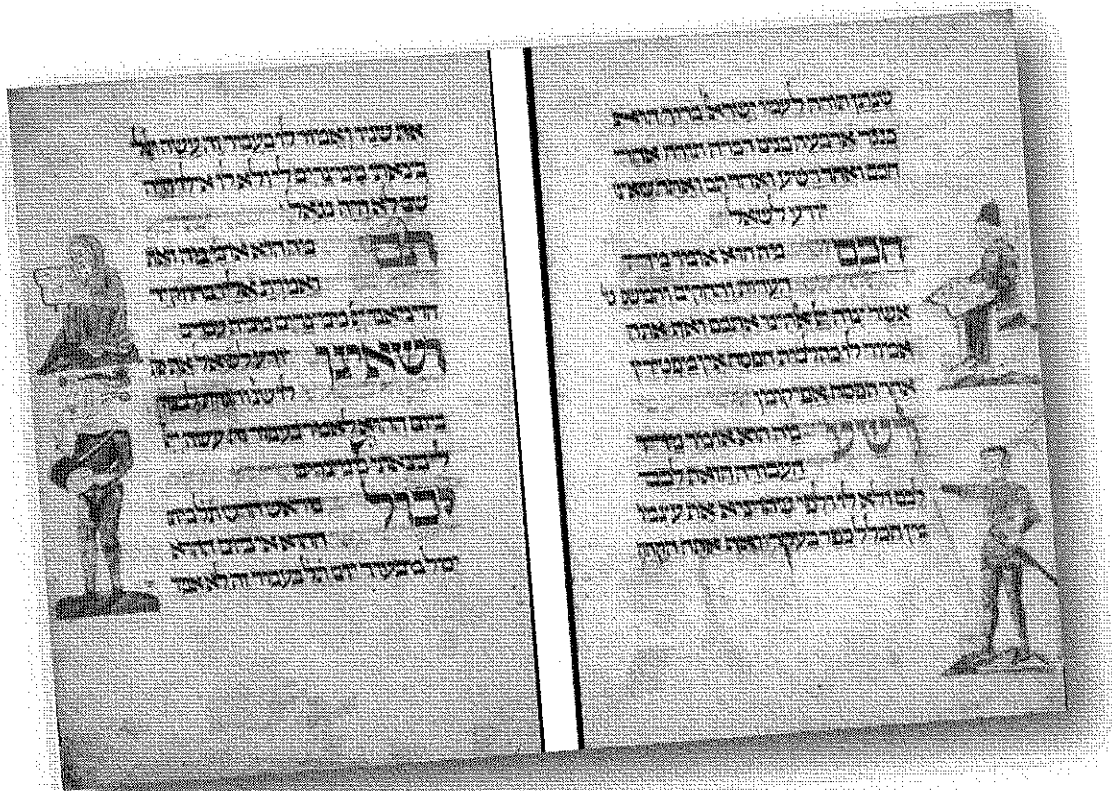 שנתן תורה לעמו ישראל ברוך הוא
כנגד ארבעה בנים דברה תורה אחד
חכם ואחד רשע ואחד תם ואחד שאינו
יודע לשאל
חכם מה הוא אומר מה
העדות והחקים והמשפטי
אשר צוה יי אלהינו אתכם ואף אתה
אמור לו כהלכות הפסח אין מפטירין
אחר הפסח אפיקומן
רשע מה הוא אומר מה
העבודה הזאת לכם
לכם ולא לו ולפי שהוציא את עצמו
מן הכלל כפר בעקר ואף אתה הקהה
את שניו ואמור לו בעבור זה עשה יי
לי בצאתי ממצרים לי ולא לו אילו היה
שם לא היה נגאל
תם מה הוא אומר מה זאת
ואמרת אליו בחוזק יד
הוציאנו יי ממצרים מבית עבדים
ושאינו יודע לשאל את פתח
לו שנ והגדת לבנך
ביום ההוא לאמר בעבור זה עשה יי
לי בצאתי ממצרים
יכול מראש חדש תל לומ
ההוא אי ביום ההוא
יכול מבעוד יום תל בעבור זה לא אמר